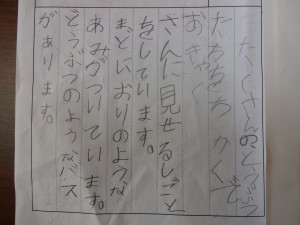 たくさんのどうぶつ
たちをちかくで
おきゃく
さんに見せるしごと
をしています。
まどにおりのような
あみがついています。
どうぶつのようなバス
があります。